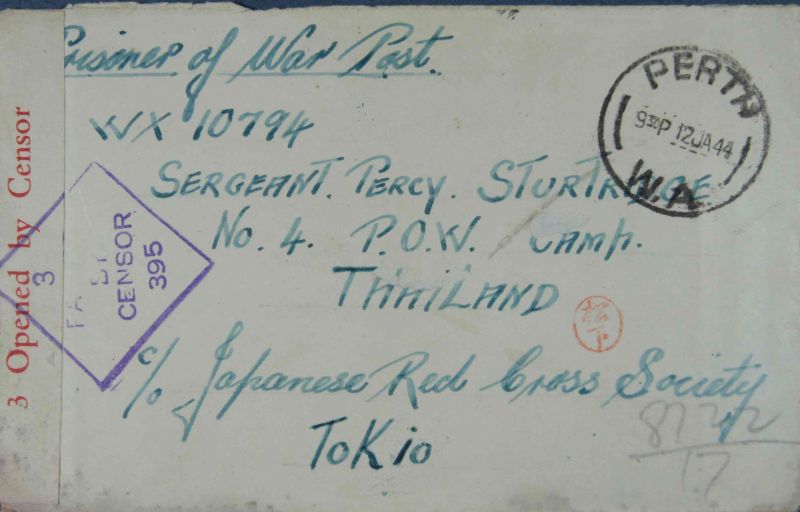 Prisoner of War Post.
WX 10794
SERGEANT. PERCY. STURTRIDGE
No. 4. P.O.W. Camp.
THAILAND
c/o Japanese Red Cross Society
ToKio
PERTH
930P 12JA44
W.A.
3 Opened by Censor
3
BY
CENSOR
395
17